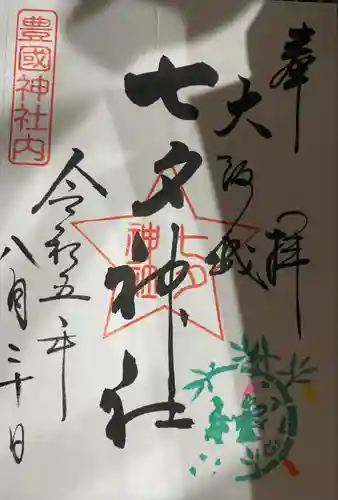 奉拝
大阪城
七夕神社
七夕神社
豊國神社内
令和五年
八月三十日